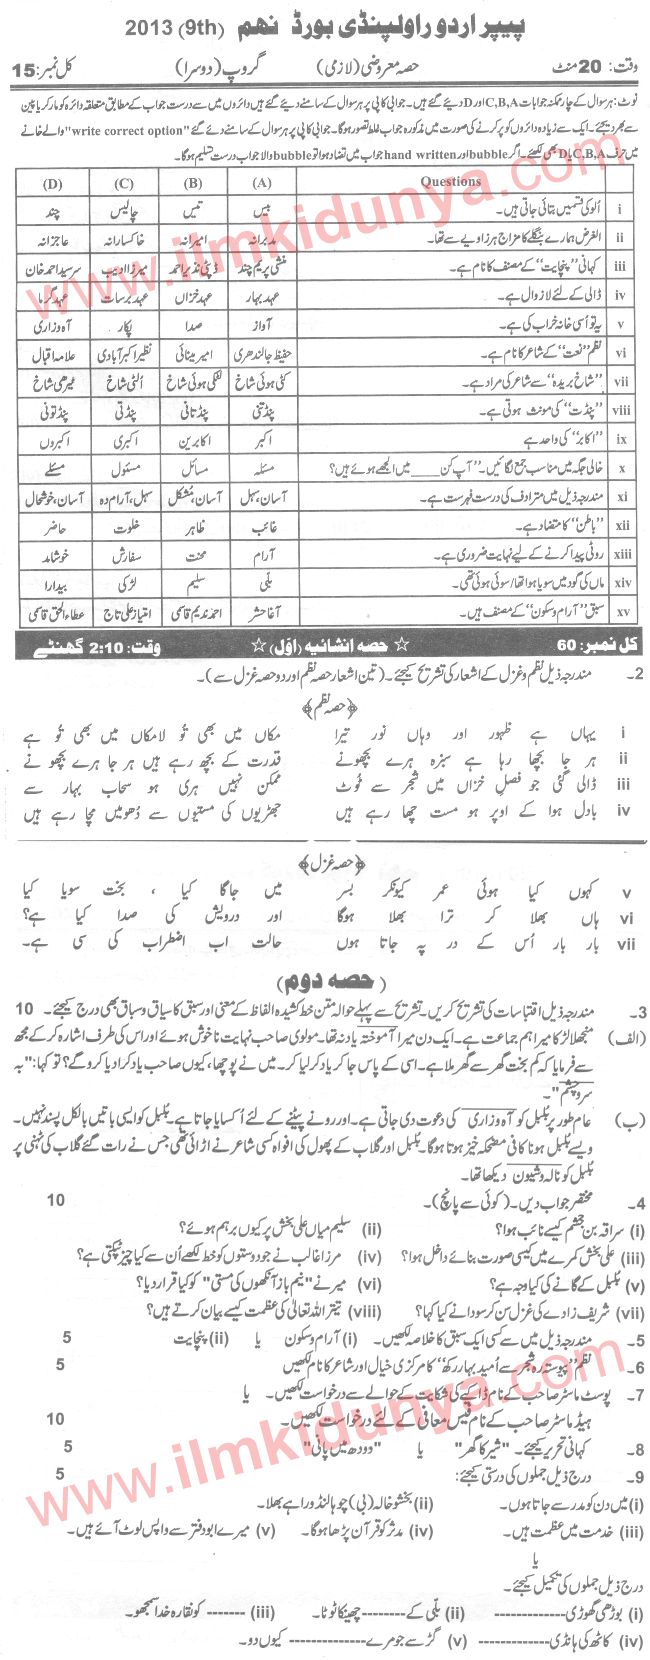 پیپر اردو راولپنڈی بورڈ نہم (9th) 2013
وقت: 20 منٹ حصہ معروضی (لازمی) گروپ (دوسرا) کل نمبر: 15
نوٹ: ہر سوال کے چار ممکنہ جوابات C,B,A اور D دیئے گئے ہیں۔ جوابی کاپی پر ہر سوال کے سامنے دیئے گئے دائروں میں سے درست جواب کے مطابق متعلقہ دائرہ کو مارکر یا پین
سے بھر دیجئے۔ ایک سے زیادہ دائروں کو پر کرنے کی صورت میں مذکورہ جواب غلط تصور ہوگا۔ جوابی کاپی پر ہر سوال کے سامنے دیئے گئے "write correct option" والے خانے
میں حرف C,B,A یا D بھی لکھیئے۔ اگر bubble اور hand written جواب میں تضاد ہوا تو bubble والا جواب درست تسلیم ہوگا۔
Questions (A) (B) (C) (D)
i اُلو کی قسمیں بتائی جاتی ہیں۔ بیس تیس چالیس چند
ii الغرض ہمارے بنگلے کا مزاج ہر زاویے سے تھا۔ مدبرانہ امیرانہ خاکسارانہ عاجزانہ
iii کہانی "پنچایت" کے مصنف کا نام ہے۔ منشی پریم چند ڈپٹی نذیر احمد میرزا ادیب سر سید احمد خان
iv ڈالی کے لئے لازوال ہے۔ عہد بہار عہد خزاں عہد برسات عہد گرما
v یہ تو اُسی خانہ خراب کی ہے۔ آواز صدا پکار آہ و زاری
vi نظم "نعت" کے شاعر کا نام ہے۔ حفیظ جالندھری امیر مینائی نظیر اکبر آبادی علامہ اقبال
vii "شاخ بریدہ" سے شاعر کی مراد ہے۔ کٹی ہوئی شاخ لٹکی ہوئی شاخ اُلٹی شاخ ٹیڑھی شاخ
viii "پنڈت" کی مونث ہوتی ہے۔ پنڈتنی پنڈتانی پنڈتی پنڈتونی
ix "اکابر" کی واحد ہے اکبر اکابرین اکبری اکبروں
x خالی جگہ میں مناسب جمع لگائیں۔ "آپ کن ____ میں الجھے ہوئے ہیں؟ مسئلہ مسائل مسئول مسئلے
xi مندرجہ ذیل میں مترادف کی درست فہرست ہے۔ آسان، سہل آسان، مشکل سہل، آرام دہ آسان، خوشحال
xii "باطن" کا متضاد ہے۔ غائب ظاہر خلوت حاضر
xiii روٹی پیدا کرنے کے لیے نہایت ضروری ہے۔ آرام محنت سفارش خوشامد
xiv ماں کی گود میں سویا ہوا تھا/سوئی ہوئی تھی۔ بلّی سلیم لڑکی بیدارا
xv سبق "آرام و سکون" کے مصنف ہیں۔ آغا حشر احمد ندیم قاسمی امتیاز علی تاج عطاء الحق قاسمی
کل نمبر: 60 ☆ حصہ انشائیہ (اوّل) ☆ وقت: 2:10 گھنٹے
2۔ مندرجہ ذیل نظم و غزل کے اشعار کی تشریح کیجئے۔ (تین اشعار حصہ نظم اور دو حصہ غزل سے)۔
﴿حصہ نظم﴾
i یہاں ہے ظہور اور وہاں نور تیرا مکاں میں بھی تُو لامکاں میں بھی تُو ہے
ii ہر جا بچھا رہا ہے سبزہ ہرے بچھونے قدرت کے بچھ رہے ہیں ہر جا ہرے بچھونے
iii ڈالی گئی جو فصل خزاں میں شجر سے ٹوٹ ممکن نہیں ہری ہو سحاب بہار سے
iv بادل ہوا کے اوپر ہو مست چھا رہے ہیں جھڑیوں کی مستیوں سے دھومیں مچا رہے ہیں
﴿حصہ غزل﴾
v کہوں کیا ہوئی عمر کیونکر بسر میں جاگا کیا ، بخت سویا کیا
vi ہاں بھلا کر ترا بھلا ہوگا اور درویش کی صدا کیا ہے؟
vii بار بار اُس کے در پہ جاتا ہوں حالت اب اضطراب کی سی ہے۔
(حصہ دوم)
3۔ مندرجہ ذیل اقتباسات کی تشریح کریں۔ تشریح سے پہلے حوالہ متن خط کشیدہ الفاظ کے معنی اور سبق کا سیاق و سباق بھی درج کیجئے۔ 10
(الف) منجھلا لڑکا میرا ہم جماعت ہے۔ ایک دن میرا آموختہ یاد نہ تھا۔ مولوی صاحب نہایت ناخوش ہوئے اور اس کی طرف اشارہ کر کے مجھ
سے فرمایا کہ کم بخت گھر سے گھر ملا ہے۔ اسی کے پاس جا کر یاد کر لیا کر۔ میں نے پوچھا، کیوں صاحب یاد کرا دیا کرو گے؟ تو کہا: "بہ
سر و چشم"۔
(ب) عام طور پر بُلبل کو آہ و زاری کی دعوت دی جاتی ہے۔ اور رونے پیٹنے کے لئے اُکسایا جاتا ہے۔ بُلبل کو ایسی باتیں بالکل پسند نہیں۔
ویسے بُلبل ہونا کافی مضحکہ خیز ہوتا ہوگا۔ بُلبل اور گلاب کے پھول کی افواہ کسی شاعر نے اڑائی تھی جس نے رات گئے گلاب کی ٹہنی پر
بُلبل کو نالہ و شیون دیکھا تھا۔
4۔ مختصر جواب دیں۔ (کوئی سے پانچ)۔ 10
(i) سراقہ بن جعشم کیسے تائب ہوا؟ (ii) سلیم میاں علی بخش پر کیوں برہم ہوئے؟
(iii) علی بخش کمرے میں کیسی صورت بنائے داخل ہوا؟ (iv) مرزا غالب نے جو دوستوں کو خط لکھے اُن سے کیا چیز ٹپکتی ہے؟
(v) بُلبل کے گانے کی کیا وجہ ہے؟ (vi) میر نے "نیم باز آنکھوں کی مستی" کو کیا قرار دیا؟
(vii) شریف زادے کی غزل سن کر سودا نے کیا کہا؟ (viii) تیتر اللہ تعالیٰ کی عظمت کیسے بیان کرتے ہیں؟
5۔ مندرجہ ذیل میں سے کسی ایک سبق کا خلاصہ لکھیں۔ (i) آرام و سکون یا (ii) پنچایت 5
6۔ نظم "پیوستہ رہ شجر سے اُمید بہار رکھ" کا مرکزی خیال اور شاعر کا نام لکھیں 5
7۔ پوسٹ ماسٹر صاحب کے نام ڈاکیے کی شکایت کے حوالے سے درخواست لکھیں۔ یا
ہیڈ ماسٹر صاحب کے نام فیس معافی کے لئے درخواست لکھیں۔ 10
8۔ کہانی تحریر کیجئے۔ "شیر کا گھر" یا "دودھ میں پانی" 5
9۔ درج ذیل جملوں کی درستی کیجئے: 5
(i) میں دن کو مدرسے جاتا ہوں۔ (ii) بخشو خالہ (بی) چوہا لنڈورا ہے بھلا۔
(iii) خدمت میں عظمت ہیں۔ (iv) مدثر کو قرآن پڑھا ہوگا۔ (v) میرے ابو دفتر سے واپس لوٹ آئے ہیں۔
یا
درج ذیل جملوں کی تکمیل کیجئے۔
(i) بوڑھی گھوڑی ------------- (ii) بلّی کے -------- چھینکا ٹوٹا۔ (iii) ------- کو نقارہ خدا سمجھو۔
(iv) کاٹھ کی ہانڈی ------------- (v) گڑ سے جو مرے ------------- کیوں دو۔
www.ilmkidunya.com
www.ilmkidunya.com